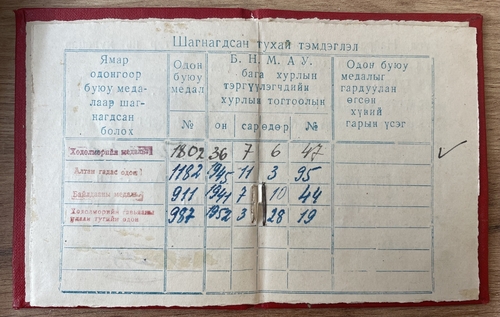 Шагнагдсан тухай тэмдэглэл
Ямар
одонгоор
буюу меда-
лаар шаг-
нагдсан
болох
Одон
буюу
медал
№
Б. Н. М. А. У.
бага хурлын
тэргүүлэгчдийн
хурлын тогтоолын
он сар өдөр №
Одон буюу
медалыг
гардуулан
өгсөн
хүвий
гарын үсэг
Хөдөлмөрийн медаль 1802 36 7 6 47
Алтан гадас одон 1182 1945 11 3 95
Байлдааны медаль 911 1941 7 10 44
Хөдөлмөрийн гавьяаны
улаан тугийн одон 987 1952 3 28 19